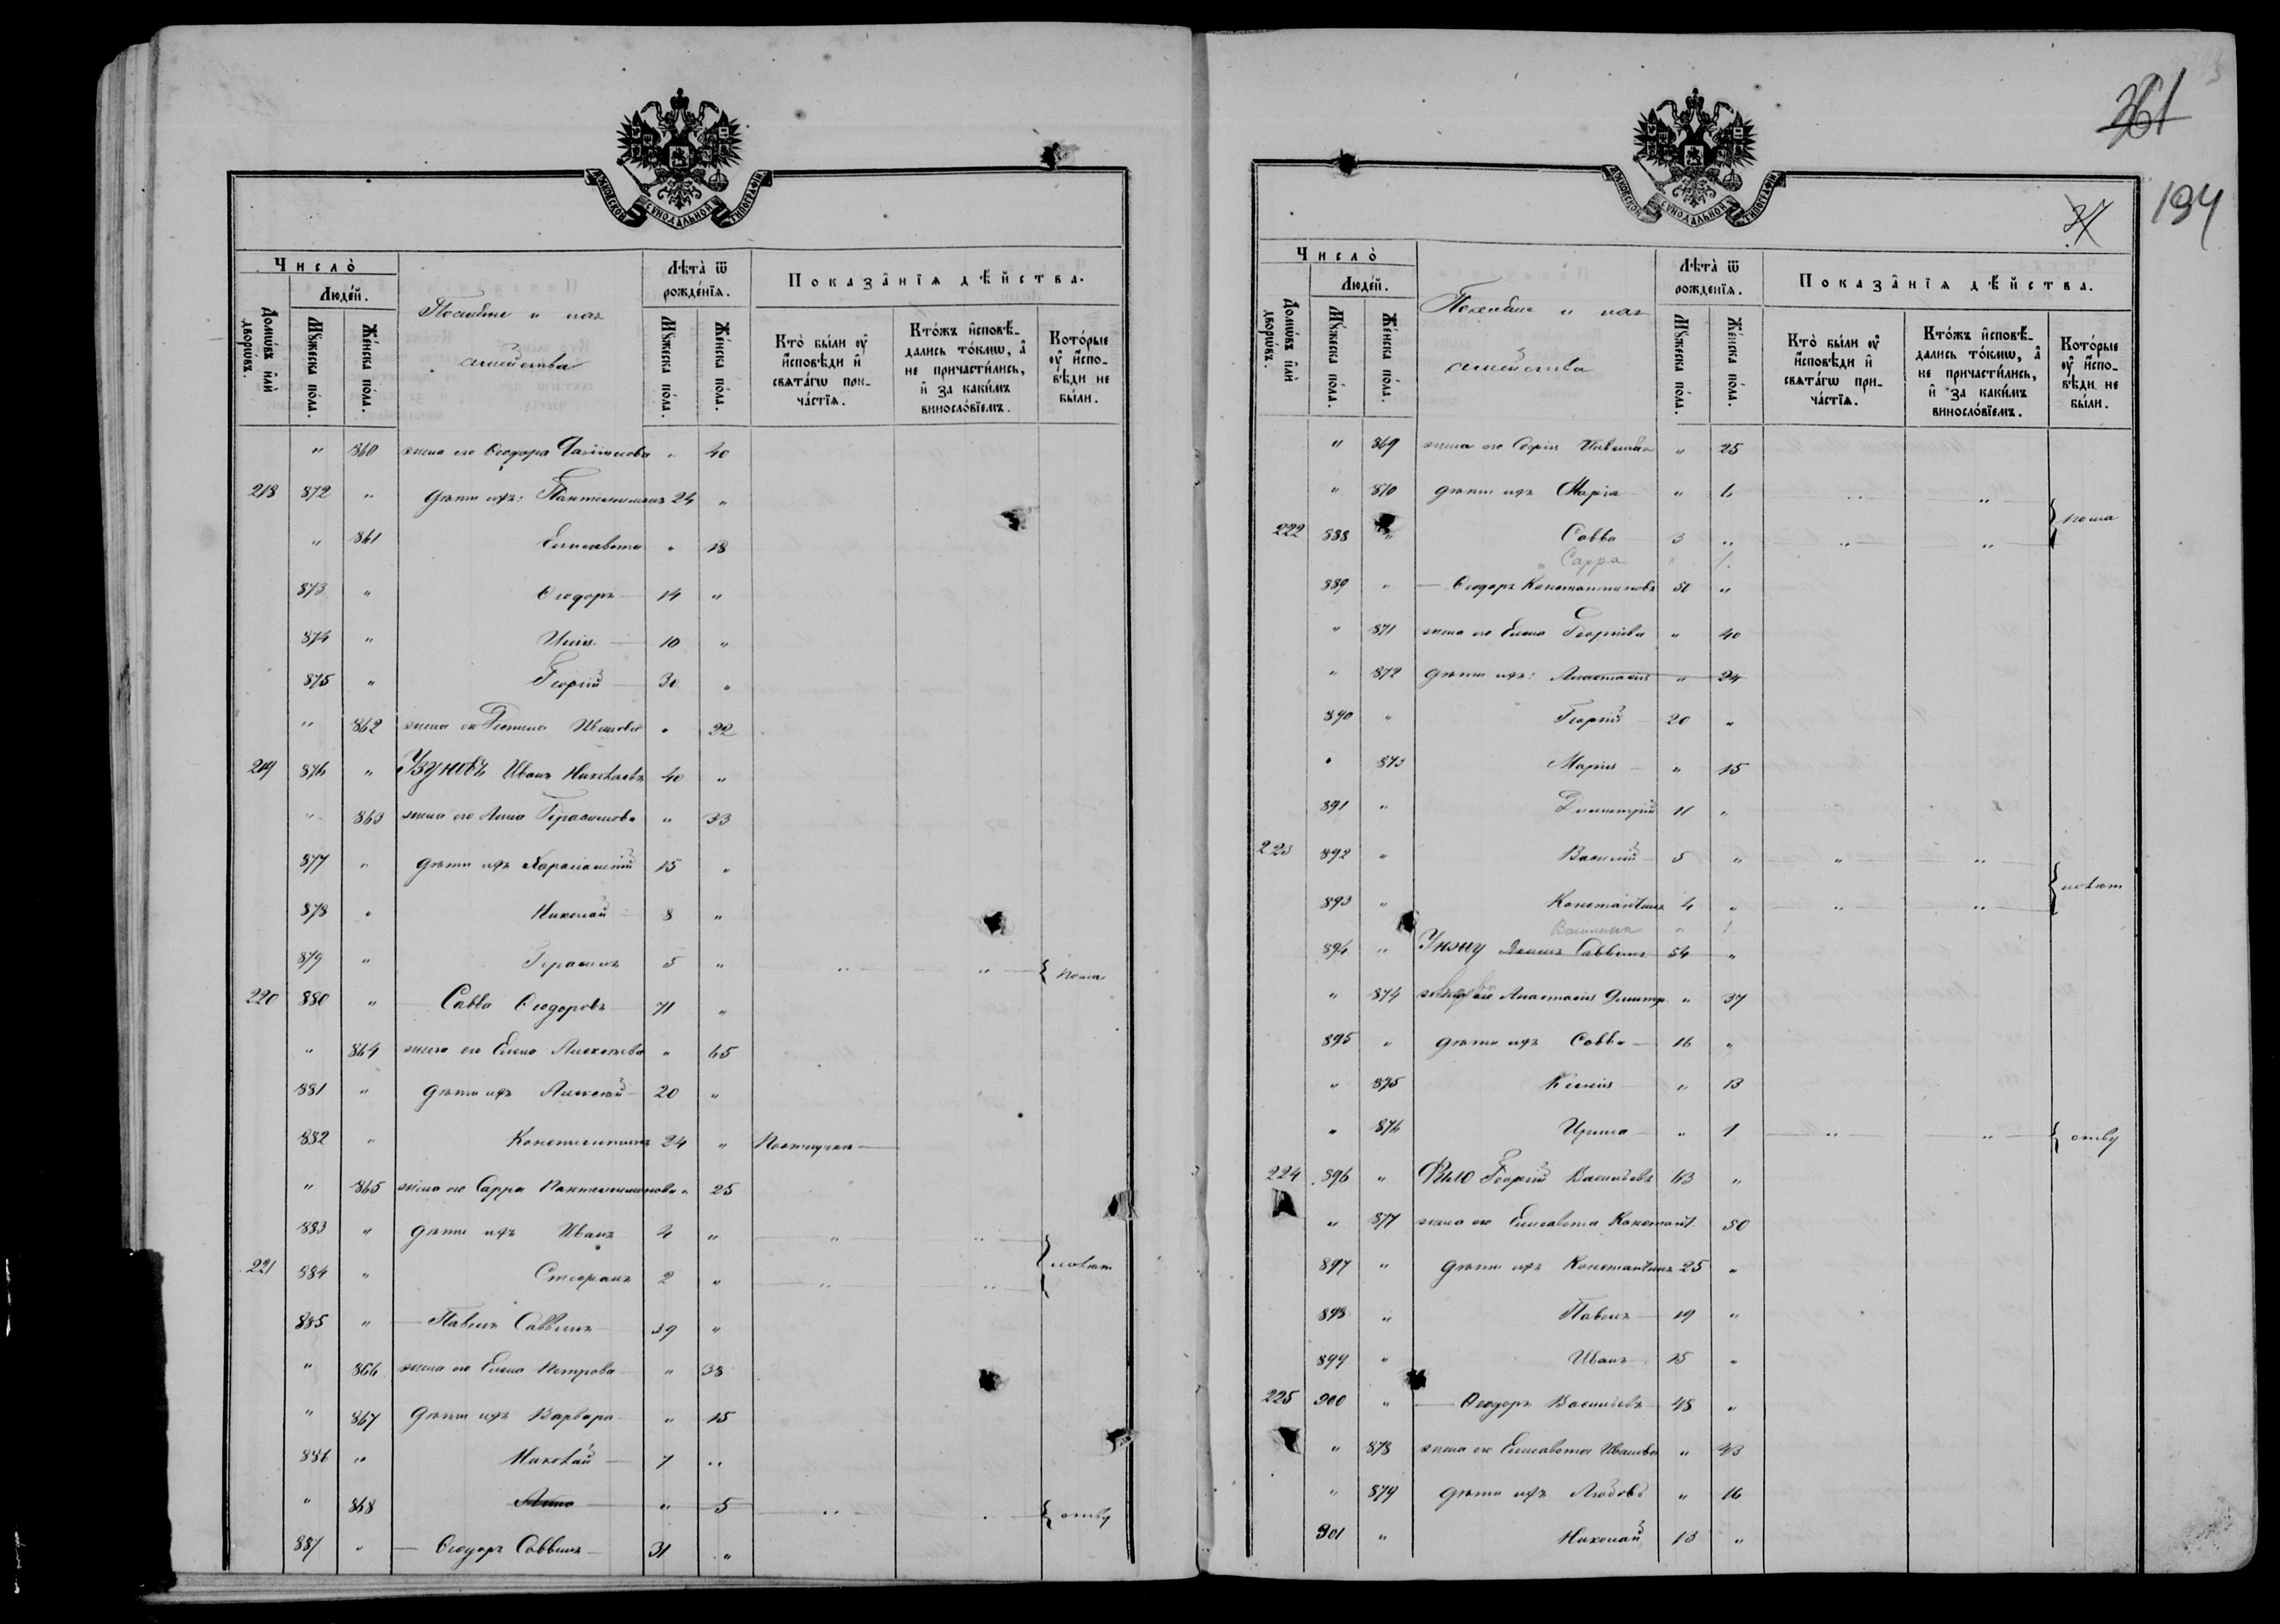 МОСКОВСКОЙ СѴНОДАЛЬНОЙ ТИПОГРАФІИ
Число̀
Людéй.
Домѡ́въ и҆лѝ дворѡ́въ.
Мꙋ́жеска по́ла.
Же́нска по́ла.
семейства
Лѣта̀ ѿ рожде́нїѧ.
Мꙋ́жеска по́ла.
Же́нска по́ла.
Показа̑нїѧ дѣ́йства.
Кто̀ бы́ли ᲂу҆ и҆́сповѣди и҆ свѧта́гѡ прича́стїѧ.
Кто́жъ и҆сповѣ́дались то́кмѡ, а҆ не причасти́лись, и҆ за каки́мъ винosло́вїемъ.
Кото́рые ᲂу҆ и҆́сповѣди не бы́ли.
" 860 жена его Ѳеодора " 40
218 872 " дѣти ихъ: Пантелеимонъ 24 "
" 861 Елисавета " 18
873 " Ѳеодоръ 14 "
874 " Илія 10 "
875 " Георгій 30 "
" 862 жена его Ивановa " 22
219 876 " Узуновъ Иванъ Николаевъ 40 "
" 863 жена его Анна Герасимова " 33
877 " дѣти ихъ Харалампій 15 "
878 " Николай 8 "
879 " Герасимъ 5 " " "
220 880 " Савва Ѳеодоровъ 71 "
" 864 жена его Елена Алексѣева " 65
881 " дѣти ихъ Алексѣй 20 "
882 " Константинъ 24 "
" 865 жена его Сарра Пантелеимонова " 25
883 " дѣти ихъ Иванъ 4 " " "
221 884 " Стефанъ 2 " " "
885 " Павелъ Саввинъ 39 "
" 866 жена его Елена Петрова " 38
" 867 дѣти ихъ Варвара " 15
886 " Николай 7 "
" 868 Анна " 5 " "
887 " Ѳеодоръ Саввинъ 31 "
361
194
37
МОСКОВСКОЙ СѴНОДАЛЬНОЙ ТИПОГРАФІИ
Число̀
Людéй.
Домѡ́въ и҆лѝ дворѡ́въ.
Мꙋ́жеска по́ла.
Же́нска по́ла.
семейства
Лѣта̀ ѿ рожде́нїѧ.
Мꙋ́жеска по́ла.
Же́нска по́ла.
Показа̑нїѧ дѣ́йства.
Кто̀ бы́ли ᲂу҆ и҆́сповѣди и҆ свѧта́гѡ прича́стїѧ.
Кто́жъ и҆сповѣ́дались то́кмѡ, а҆ не причасти́лись, и҆ за каки́мъ винosло́вїемъ.
Кото́рые ᲂу҆ и҆́сповѣди не бы́ли.
" 869 жена его Софія " 25
" 870 дѣти ихъ Марія " 6 " "
222 888 " Савва 3 " " "
Сарра " 1
889 " Ѳеодоръ Константиновъ 50 "
" 871 жена его Елена Георгіева " 40
" 872 дѣти ихъ: Анастасія " 24
890 " Георгій 20 "
" 873 Марія " 15
891 " Димитрій 11 "
223 892 " Василій 5 " " "
893 " Константинъ 4 " " "
Василиса " 1
894 " Саввинъ 54 "
" 874 Анастасія Димитр. " 37
895 " дѣти ихъ Савва 16 "
" 875 Ксенія " 13
" 876 Ирина " 1 " "
224 896 " Георгій Васильевъ 63 "
" 877 жена его Елисавета Констант. 50
897 " дѣти ихъ Константинъ 25 "
898 " Павелъ 19 "
899 " Иванъ 15 "
225 900 " Ѳеодоръ Васильевъ 48 "
" 878 жена его Елисавета Иванова " 43
" 879 дѣти ихъ Любовь " 16
901 " Николай 13 "